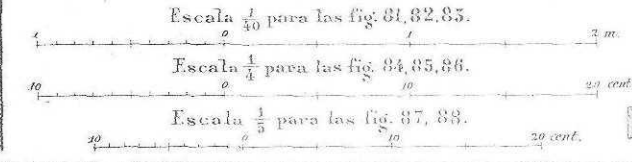 Escala 1/40 para las fig. 81, 82, 83.
1 0 1 2 m.
Escala 1/4 para las fig. 84, 85, 86.
10 0 10 20 cent
Escala 1/5 para las fig. 87, 88.
10 0 10 20 cent.